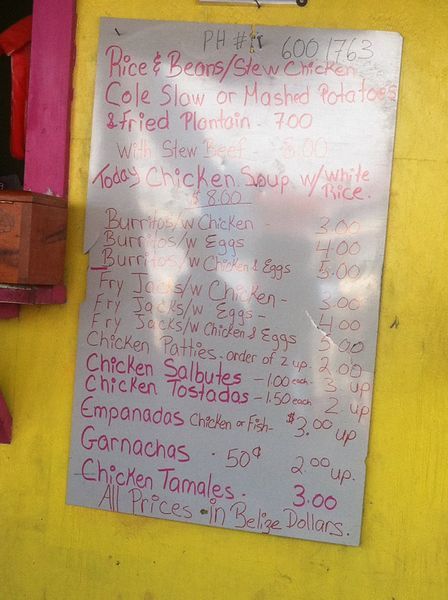 PH # 600 1763
Rice & Beans/Stew Chicken
Cole Slaw or Mashed Potatoes
& Fried Plantain - 7.00
With Stew Beef 8.00
Today Chicken Soup w/ White Rice.
$8.00
Burritos/w Chicken - 3.00
Burritos/w Eggs 4.00
Burritos/w Chicken & Eggs 5.00
Fry Jacks/w Chicken - 3.00
Fry Jacks/w Eggs - 4.00
Fry Jacks/w Chicken & Eggs 5.00
Chicken Patties - order of 2 up 2.00
Chicken Salbutes - 1.00 each - 3 up
Chicken Tostados - 1.50 each 2 up
Empanadas Chicken or Fish - $3.00 up
Garnachas - 50¢ 2.00 up.
Chicken Tamales - 3.00
All Prices in Belize Dollars.